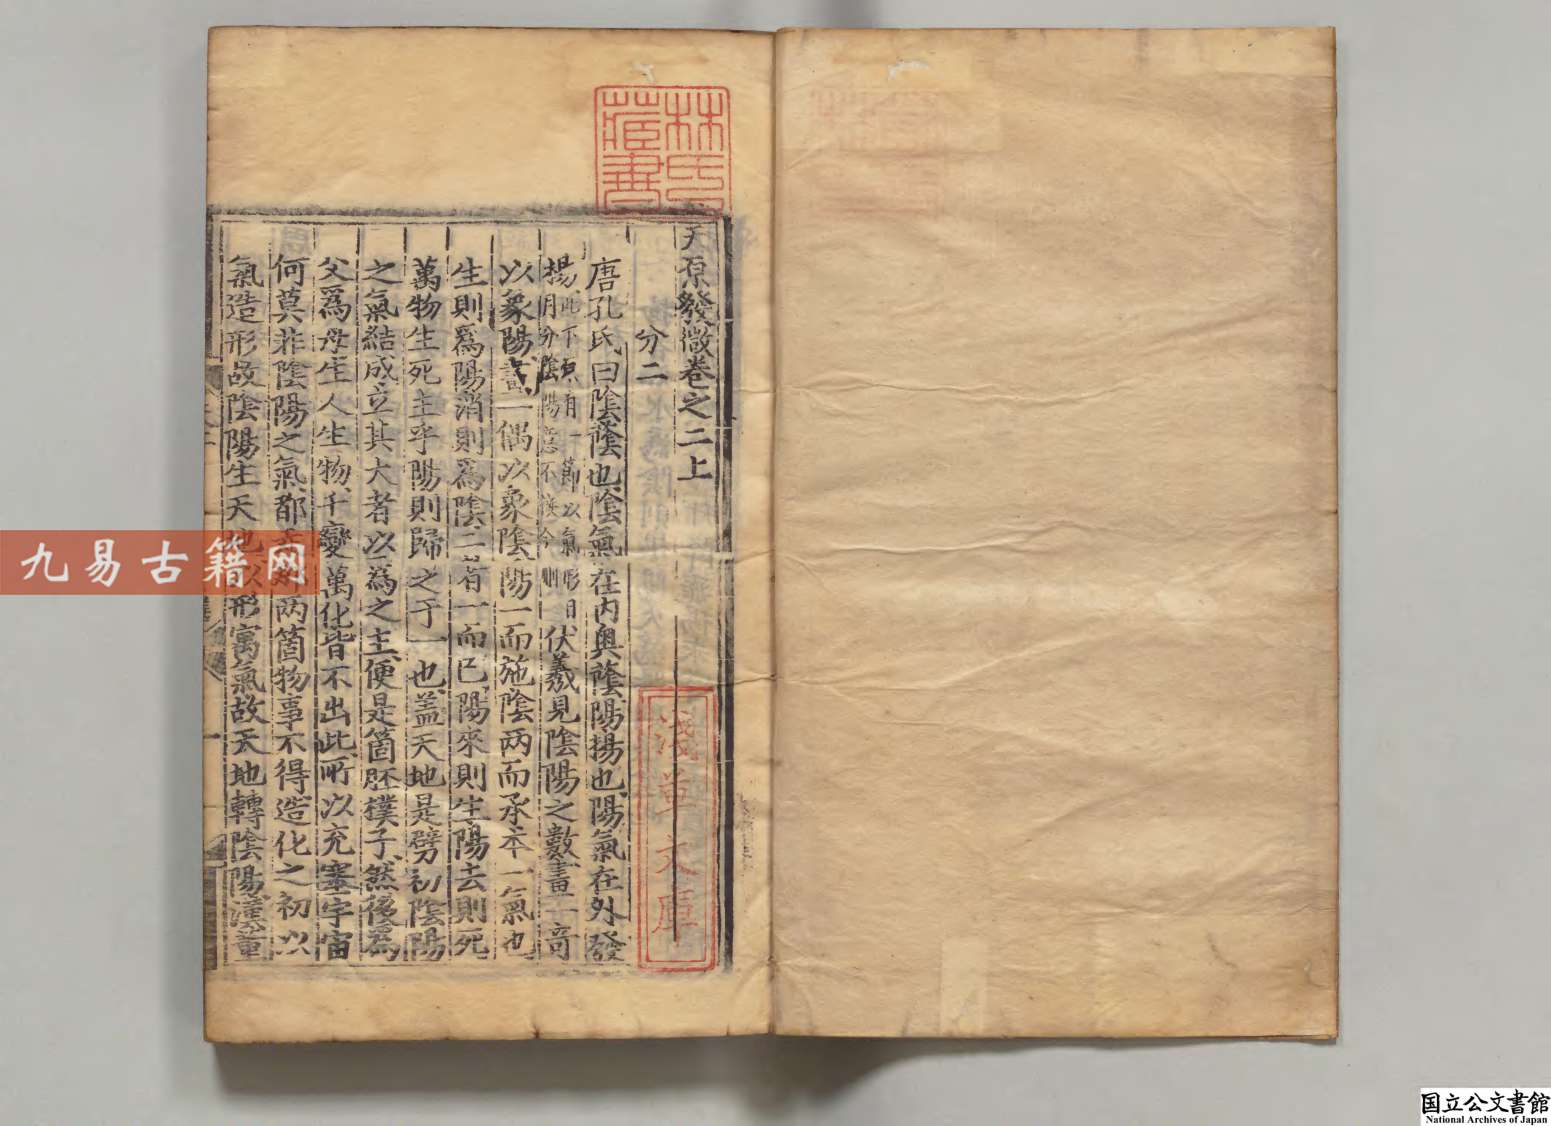 天原發微卷之二上
分二
唐孔氏曰陰蔭也陰氣在内奥蔭陽揚也陽氣在外發
揚此下原有一節以氣形相
月分陰陽意不
伏羲見陰陽之數畫一竒
以象陽畫一偶以象陰陽一而施陰两而承本一氣也
生則爲陽消則爲陰二者一而已陽來則生陽去則死
萬物生死主乎陽則歸之于一也盖天地是劈初陰陽
之氣結成立其大者以爲之主便是箇胚撲子然後爲
父爲母生人生物千變萬化皆不出此所以充塞宇宙
何莫非陰陽之氣都 两箇物事不得造化之初以
氣造形故陰陽生天地以形寓氣故天地轉陰陽
林氏
藏書
淺草文庫
九易古籍网
国立公文書館
National Archives of Japan